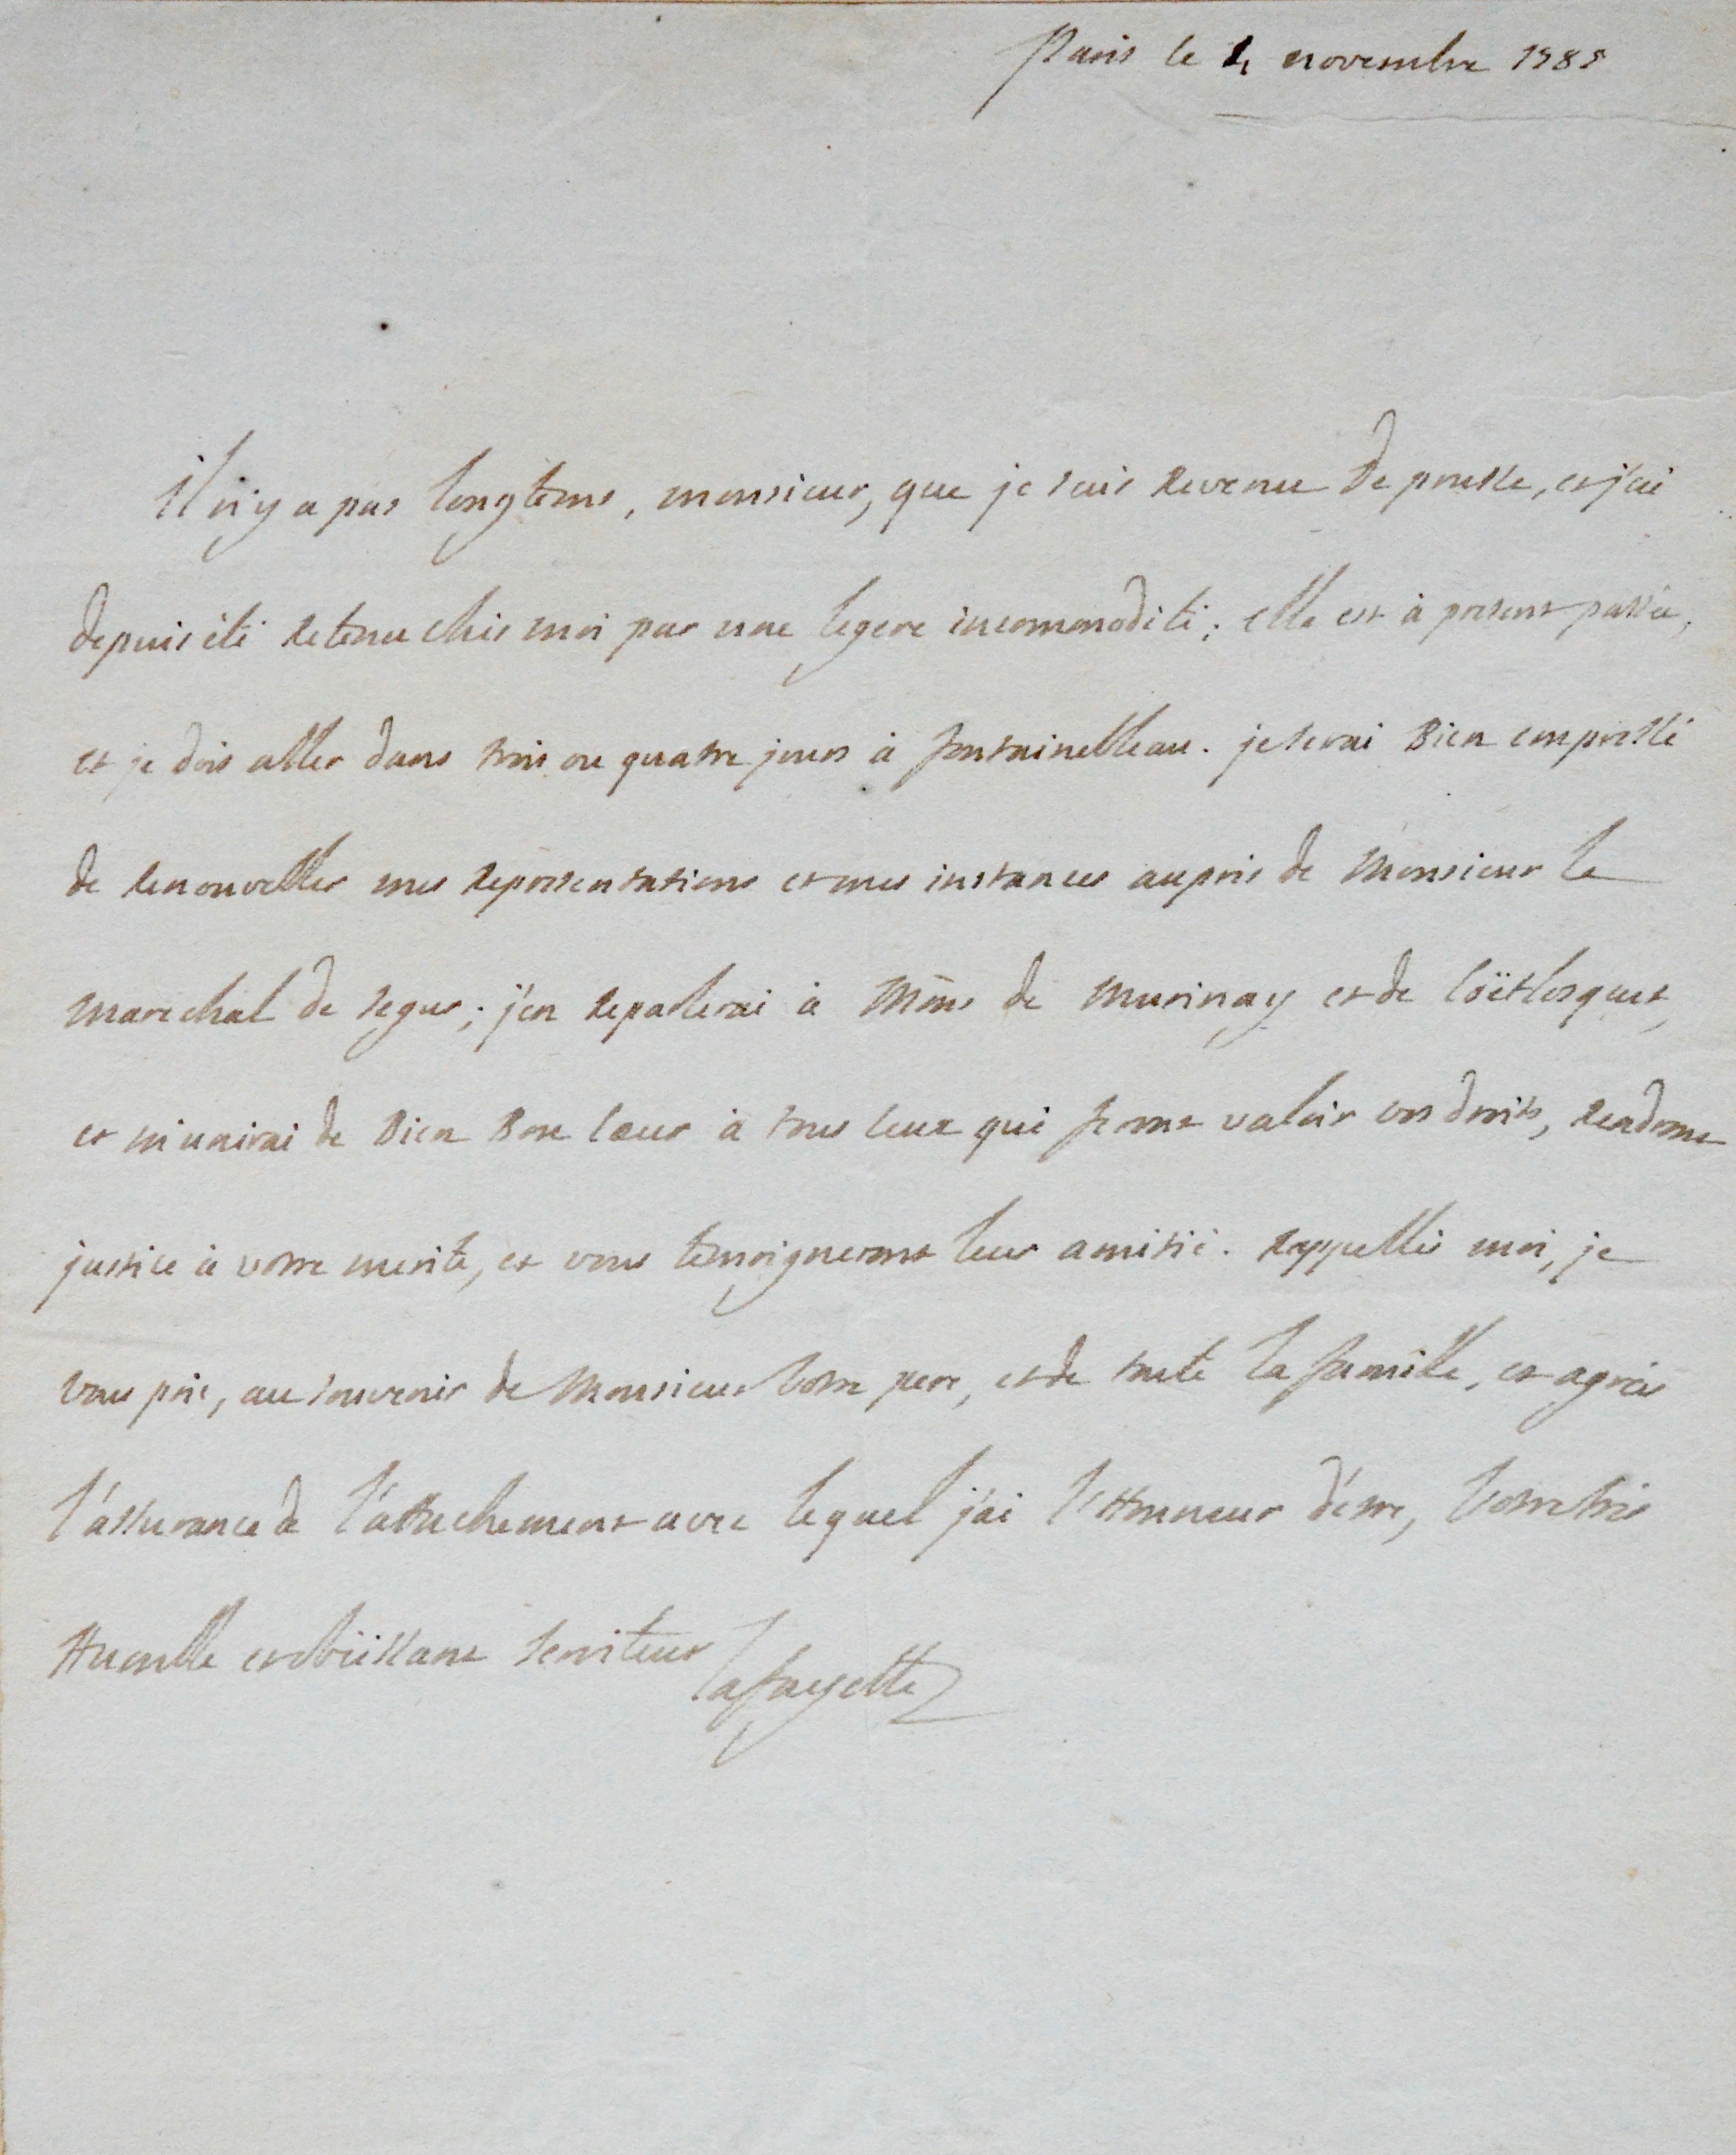 Paris le 4 novembre 1785
il n'y a pas longtems, monsieur, que je suis revenu de prusse, et j'ai
depuis été retenu chés moi par une legere incommodité; elle est à present passée,
et je dois aller dans trois ou quatre jours à fontainebleau. je serai Bien empressé
de renouveller mes representations et mes instances aupres de Monsieur le
marechal de segur; j'en reparlerai à Mrs de Murinay et de Coëtlosquet,
et m'unirai de Bien Bon Cœur à tous Ceux qui feront valoir vos droits, rendront
justice à votre merite, et vous temoigneront leur amitié. rappellés moi, je
vous prie, au souvenir de Monsieur votre pere, et de toute la famille, et agrées
l'assurance de l'attachement avec lequel j'ai l'Honneur d'être, votre très
Humble et obéissant serviteur
lafayette